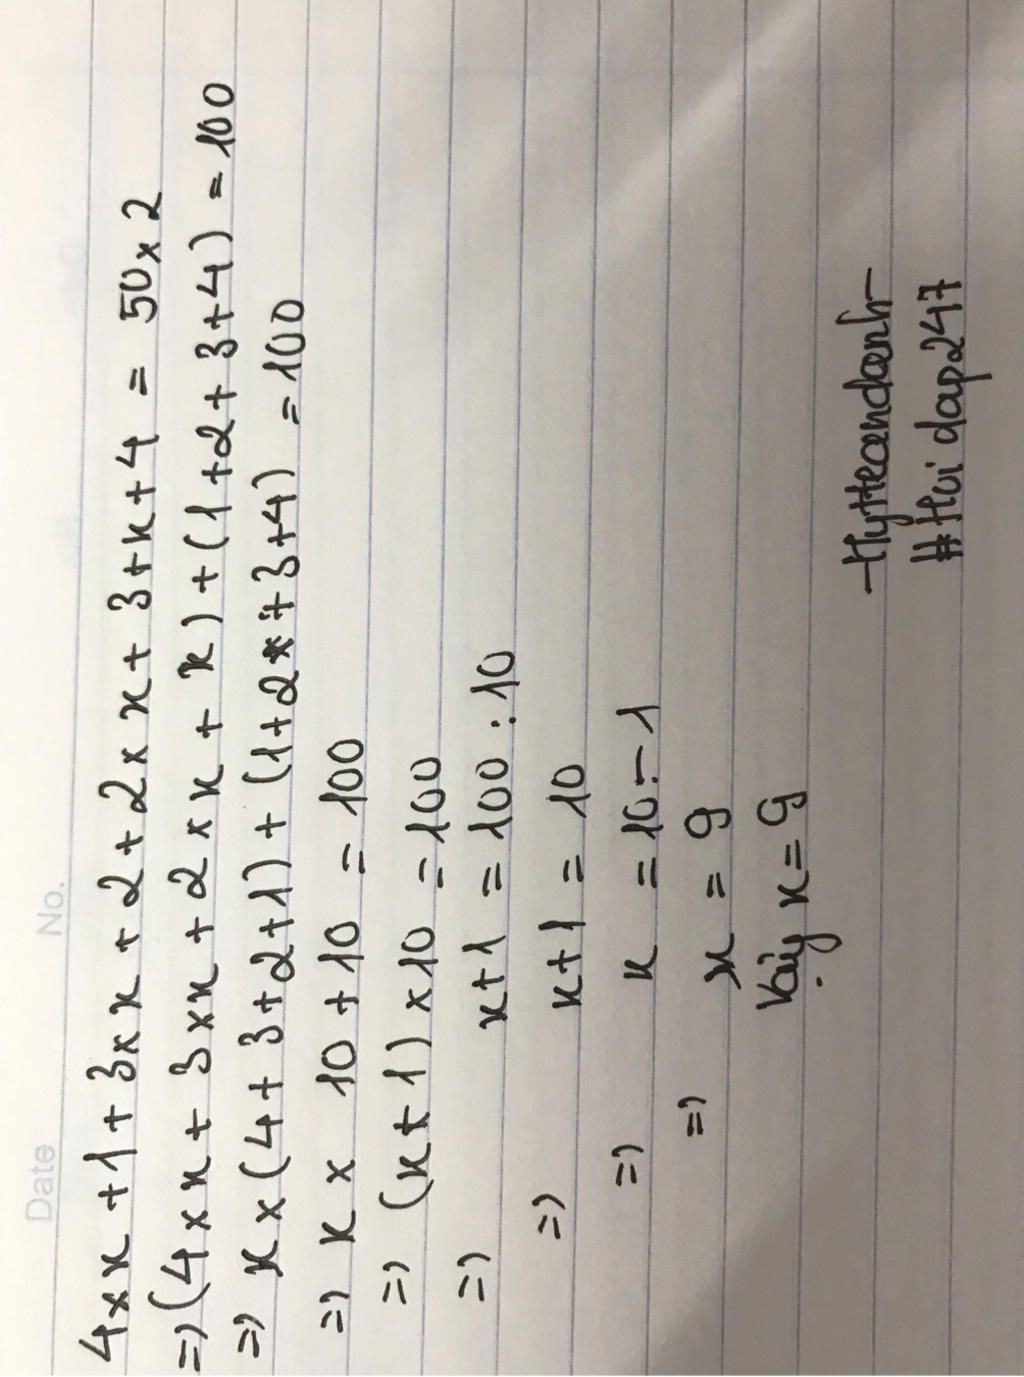 Date No.
4 x x + 1 + 3 x x + 2 + 2 x x + 3 + x + 4 = 50 x 2
=> (4 x x + 3 x x + 2 x x + x) + (1 + 2 + 3 + 4) = 100
=> x x (4 + 3 + 2 + 1) + (1 + 2 + 3 + 4) = 100
=> x x 10 + 10 = 100
=> (x + 1) x 10 = 100
=> x + 1 = 100 : 10
=> x + 1 = 10
=> x = 10 - 1
=> x = 9
Vậy x = 9
-Hyttrandanh-
#Hoi dap247